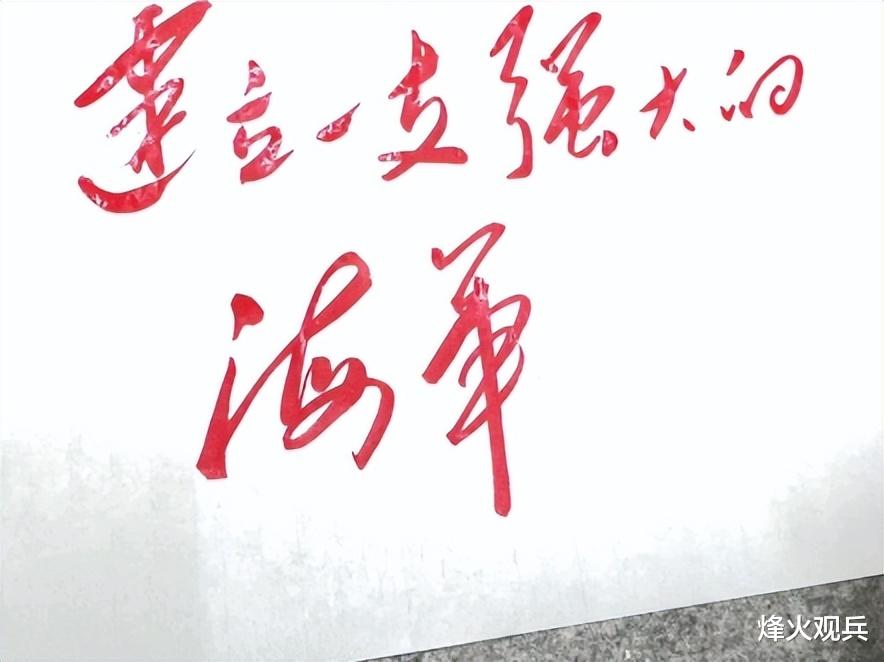 建立一支强大的
海军
烽火观兵